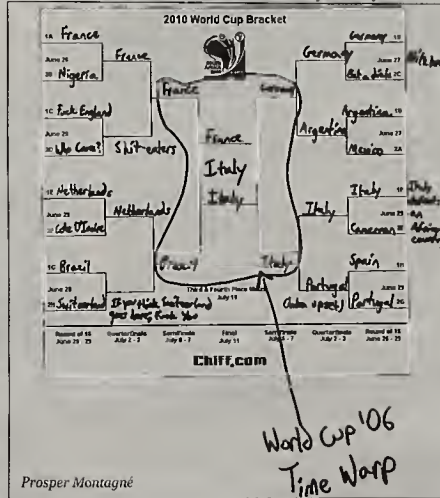 2010 World Cup Bracket
1A France
June 26
2B Nigeria
France
1C Fuck England
June 26
2D Who Cares?
Shit-eaters
France
1E Netherlands
June 28
2F Cote D'Ivoire
Netherlands
1G Brazil
June 28
2H Switzerland
If you think Switzerland
goes here, Fuck You
Brazil
France
Italy
Italy
Germany
Germany
Germany 1D
June 27
2C
Argentina
Argentina 1B
June 27
Mexico 2A
Italy
Italy
Italy 1F
June 29
Cameroon 2E
Italy
an
country
Portugal
Spain 1H
June 29
Portugal 2G
upset)
Third & Fourth Place
July 10
Round of 16
June 26 - 29
Quarterfinals
July 2 - 3
Semifinals
July 6 - 7
Final
July 11
Semifinals
July 6 - 7
Quarterfinals
July 2 - 3
Round of 16
June 26 - 29
Chiff.com
World Cup '06
Time Warp
Prosper Montagné